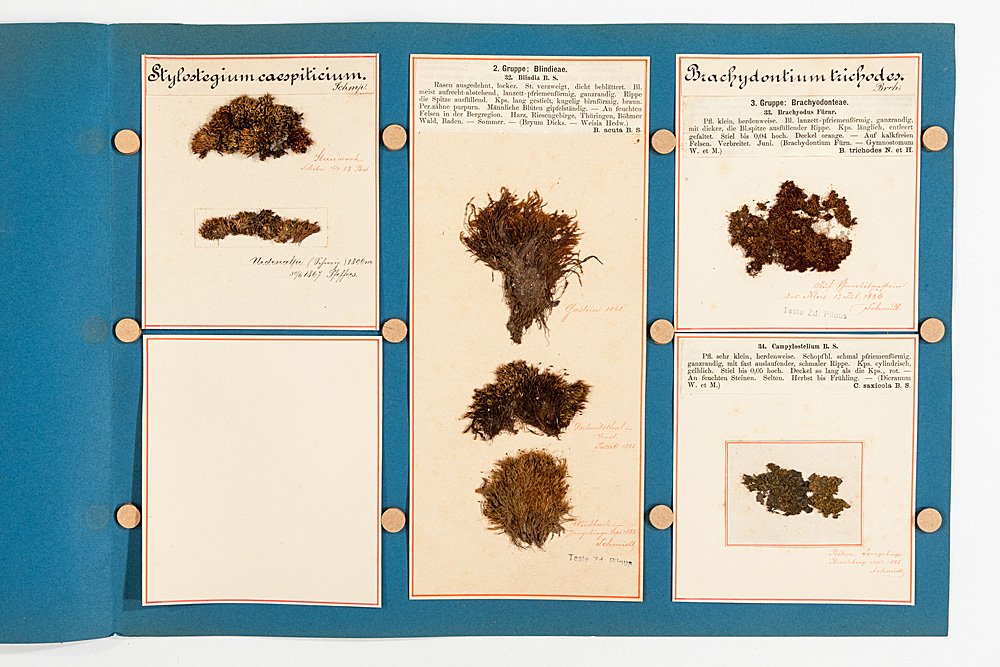 Stylostegium caespiticium.
Schmpr.
1800m
1867
2. Gruppe: Blindieae.
32. Blindia B. S.
Rasen ausgedehnt, locker. St. verzweigt, dicht beblättert. Bl.
meist aufrecht-abstehend, lanzett-pfriemenförmig, ganzrandig. Rippe
die Spitze ausfüllend. Kps. lang gestielt, kugelig birnförmig, braun.
Per.zähne purpurn. Männliche Blüten gipfelständig. — An feuchten
Felsen in der Bergregion. Harz, Riesengebirge, Thüringen, Böhmer
Wald, Baden. — Sommer. — (Bryum Dicks. — Weisia Hedw.)
B. acuta B. S.
Gastein
Schmidt
Taste Zd. Pilous
Brachydontium trichodes.
3. Gruppe: Brachyodonteae.
33. Brachyodus Fürnr.
Pfl. klein, herdenweise. Bl. lanzett-pfriemenförmig, ganzrandig,
mit dicker, die Bl.spitze ausfüllender Rippe. Kps. länglich, entleert
gefaltet. Stiel bis 0,04 hoch. Deckel orange. — Auf kalkfreien
Felsen. Verbreitet. Juni. (Brachydontium Fürn. — Gymnostomum
W. et M.) B. trichodes N. et H.
Schmidt.
Taste Zd. Pilous
34. Campylostelium B. S.
Pfl. sehr klein, herdenweise. Schopfbl. schmal pfriemenförmig,
ganzrandig, mit fast auslaufender, schmaler Rippe. Kps. cylindrisch,
gelblich. Stiel bis 0,05 hoch. Deckel so lang als die Kps., rot. —
An feuchten Steinen. Selten. Herbst bis Frühling. — (Dicranum
W. et M.) C. saxicola B. S.
Schmidt